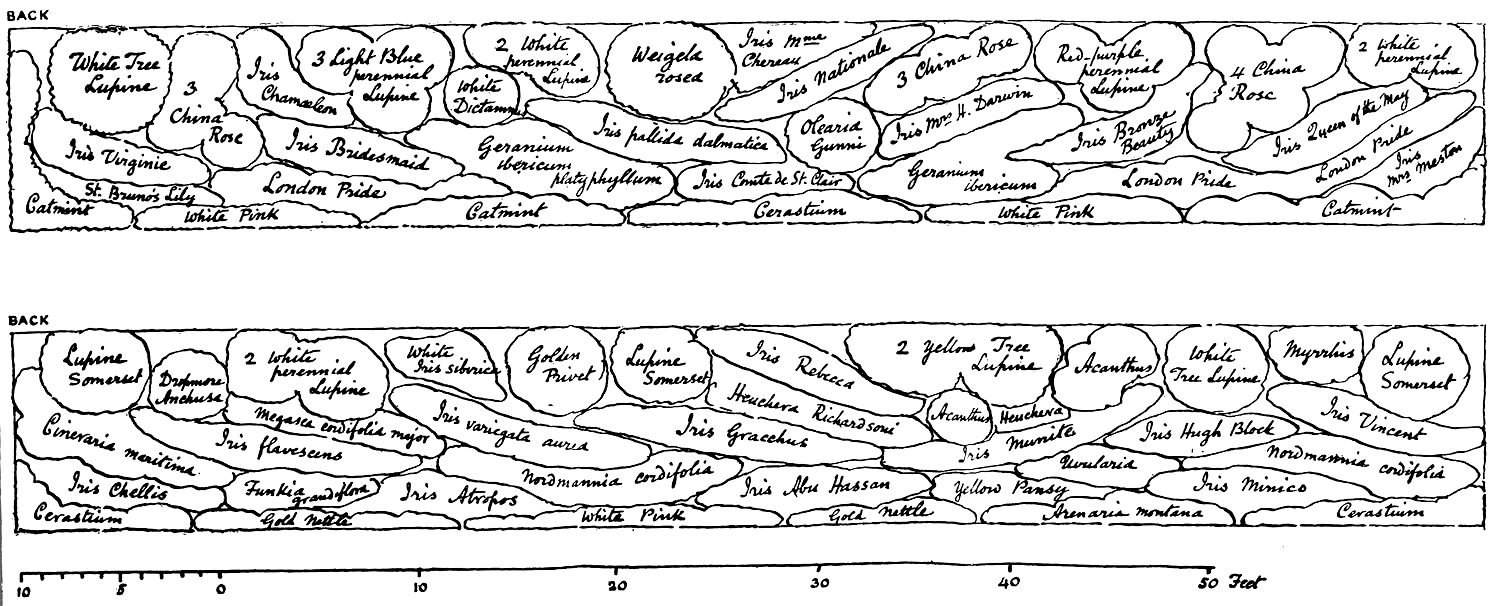 BACK
White Tree
Lupine
3
China
Rose
Iris
Chamæleon
3 Light Blue
perennial
Lupine
2 White
perennial
Lupine
White
Dictamn
Weigela
rosea
Iris Mme
Chereau
Iris Nationale
3 China Rose
Red-purple
perennial
Lupine
4 China
Rose
2 White
perennial
Lupine
Iris Virginie
Iris Bridesmaid
Geranium
ibericum
platyphyllum
Iris pallida dalmatica
Olearia
Gunni
Iris Mrs H. Darwin
Geranium
ibericum
Iris Bronze
Beauty
Iris Queen of the May
London Pride
Iris
Mrs Meston
St. Bruno's Lily
London Pride
Iris Comte de St. Clair
London Pride
Catmint
White Pink
Catmint
Cerastium
White Pink
Catmint
BACK
Lupine
Somerset
Dropmore
Anchusa
2 White
perennial
Lupine
White
Iris siberica
Golden
Privet
Lupine
Somerset
Iris Rebecca
2 Yellow Tree
Lupine
Acanthus
White
Tree Lupine
Myrrhis
Lupine
Somerset
Cineraria maritima
Iris flavescens
Megasea cordifolia major
Iris variegata aurea
Iris Gracchus
Heuchera Richardsoni
Acanthus
Heuchera
Iris Munite
Iris Hugh Block
Iris Vincent
Iris Chellis
Funkia
grandiflora
Iris Atropos
Nordmannia cordifolia
Iris Abu Hassan
Yellow Pansy
Uvularia
Iris Minico
Nordmannia cordifolia
Cerastium
Gold Nettle
White Pink
Gold Nettle
Arenaria montana
Cerastium
10 5 0 10 20 30 40 50 Feet